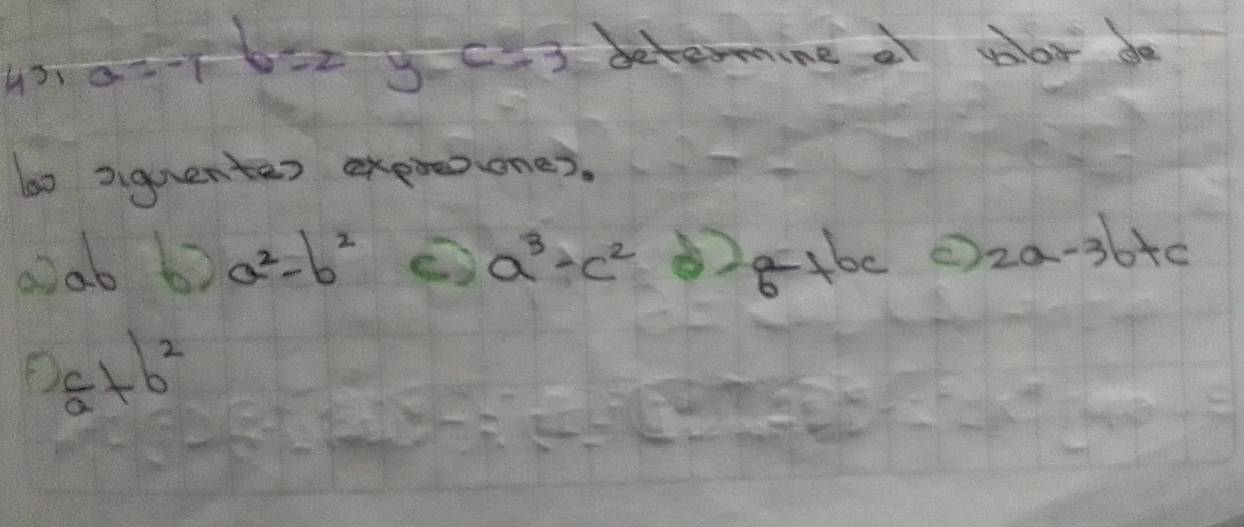 4) Si a=-1 b=2 y c=3 determine el valor de
las siguientes expresiones.
a) ab b) a²-b² c) a³-c² d) a/b+bc e) 2a-3b+c
f) c/a+b²